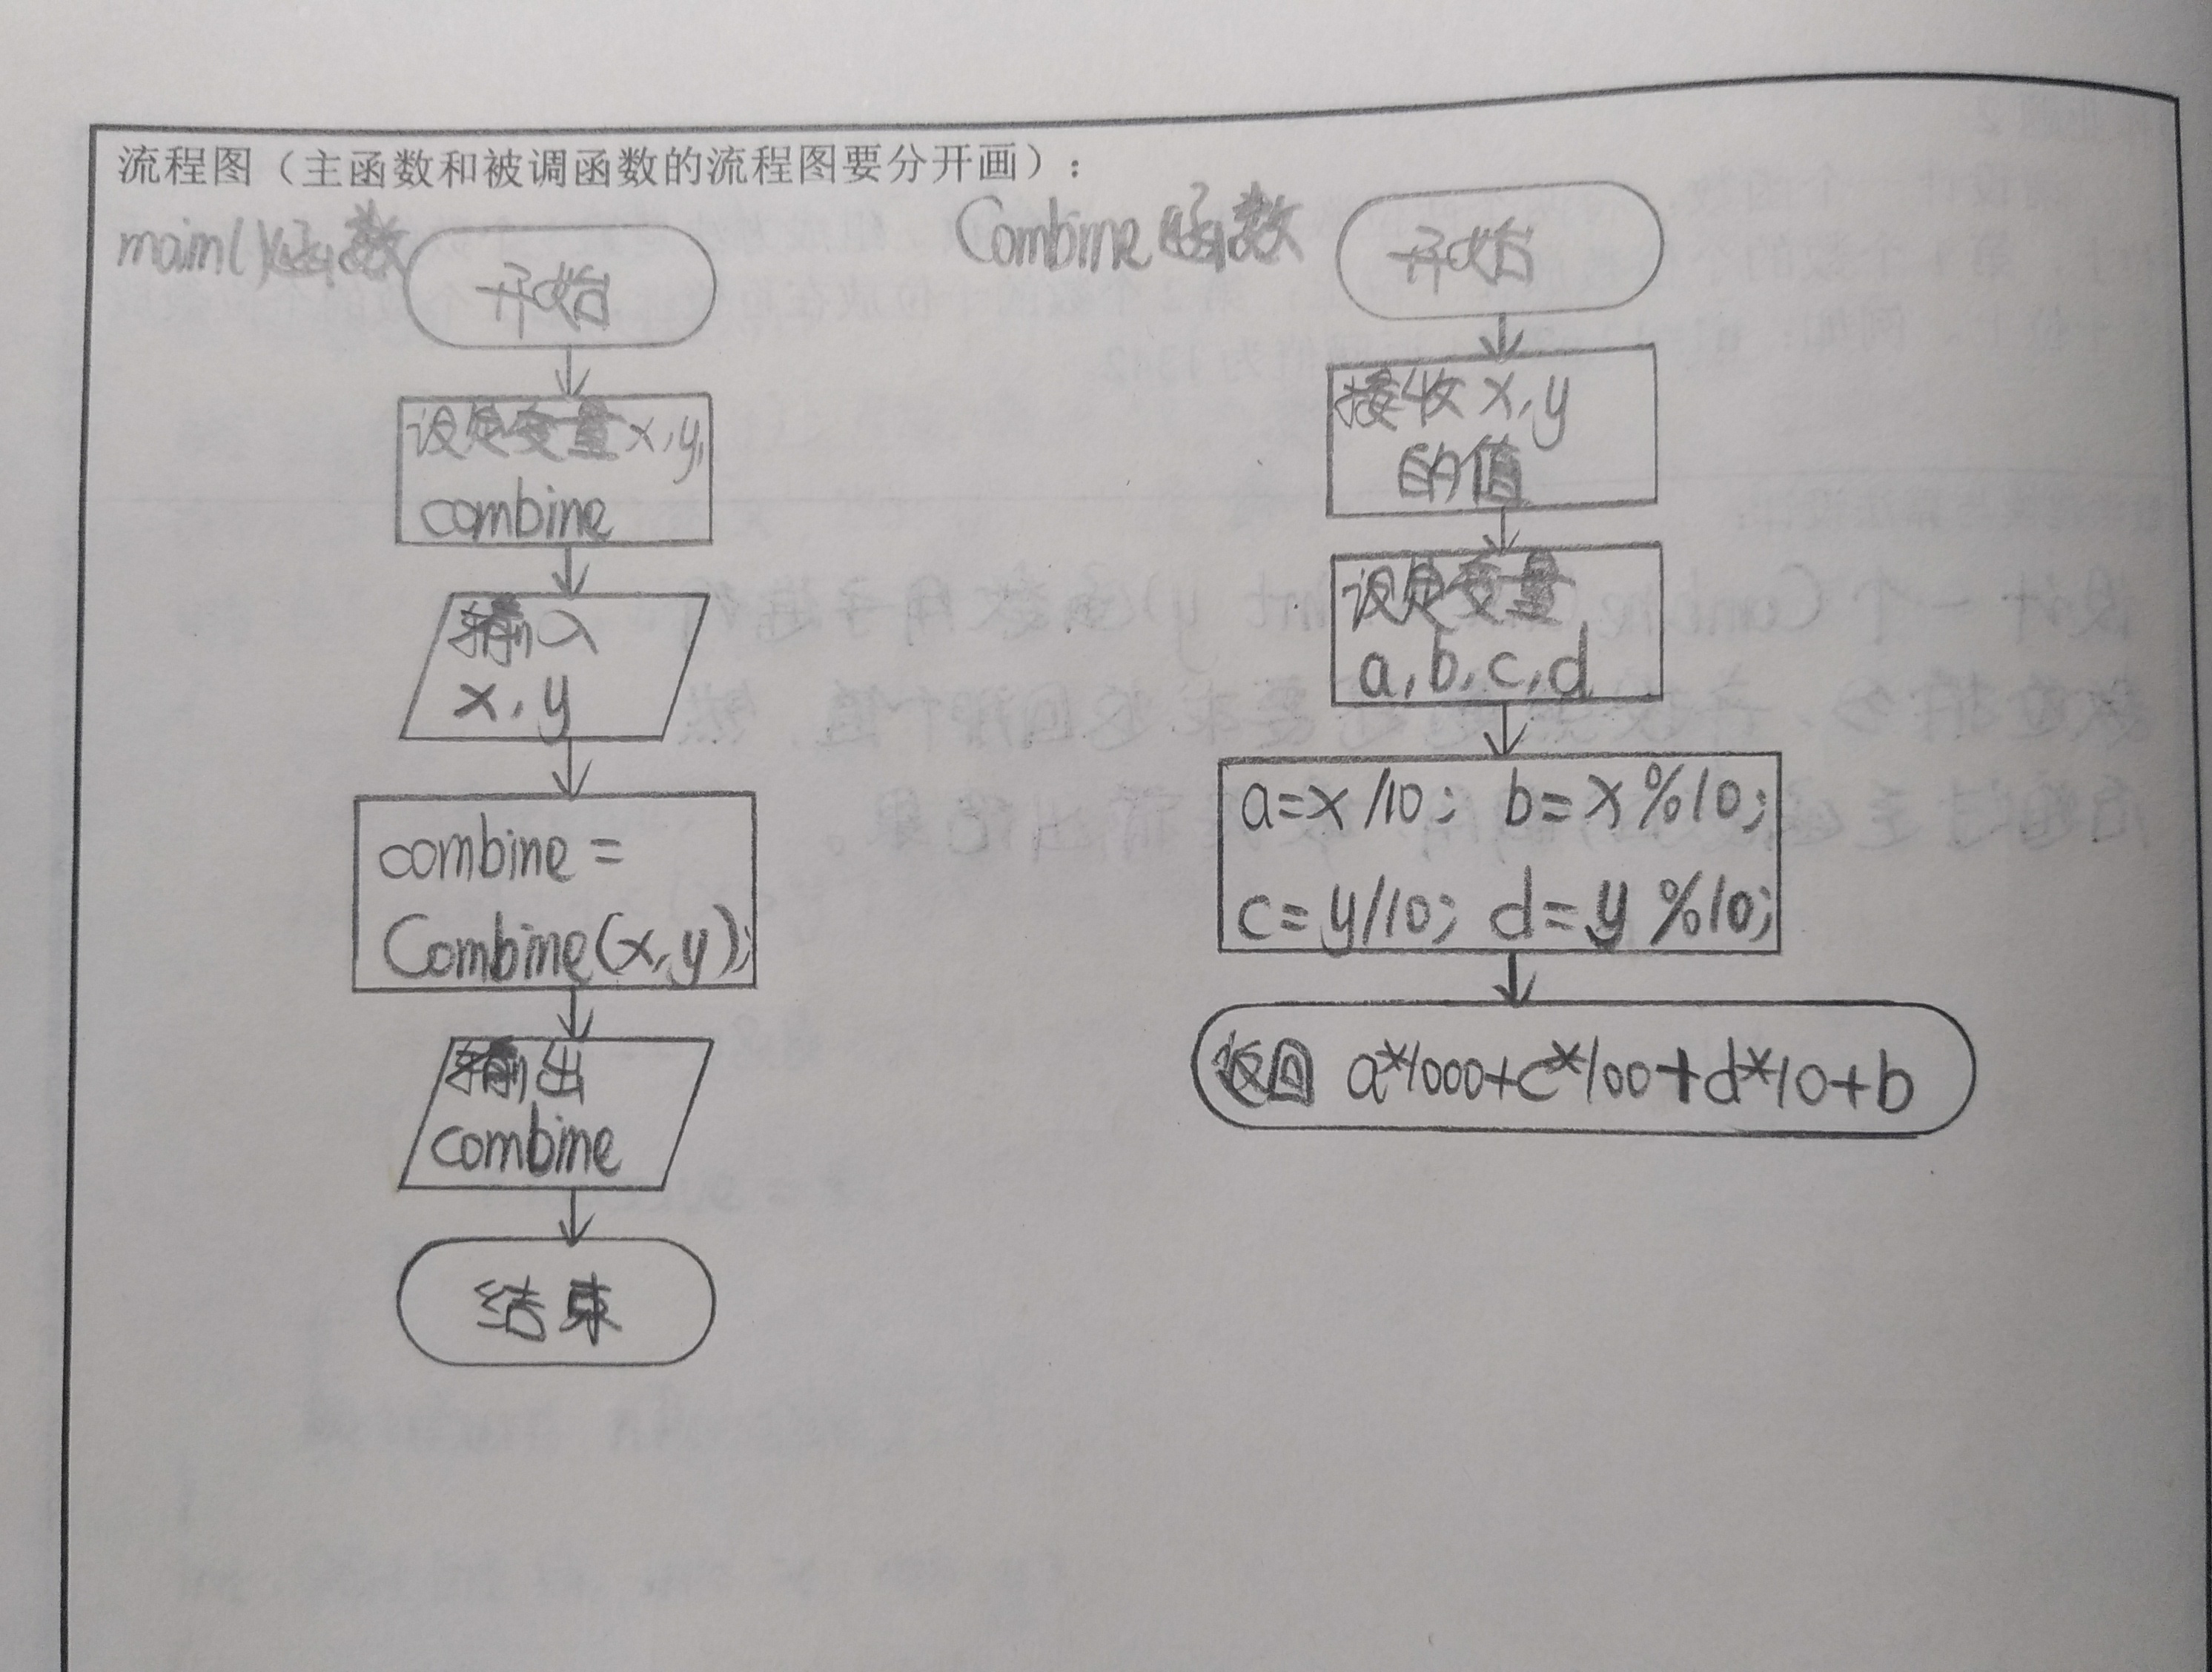 流程图（主函数和被调函数的流程图要分开画）：
main()函数
开始
设定变量x,y,
combine
输入
x,y
combine =
Combine(x,y);
输出
combine
结束
Combine函数
开始
接收x,y
的值
设定变量
a,b,c,d
a=x/10; b=x%10;
c=y/10; d=y%10;
返回 a*1000+c*100+d*10+b